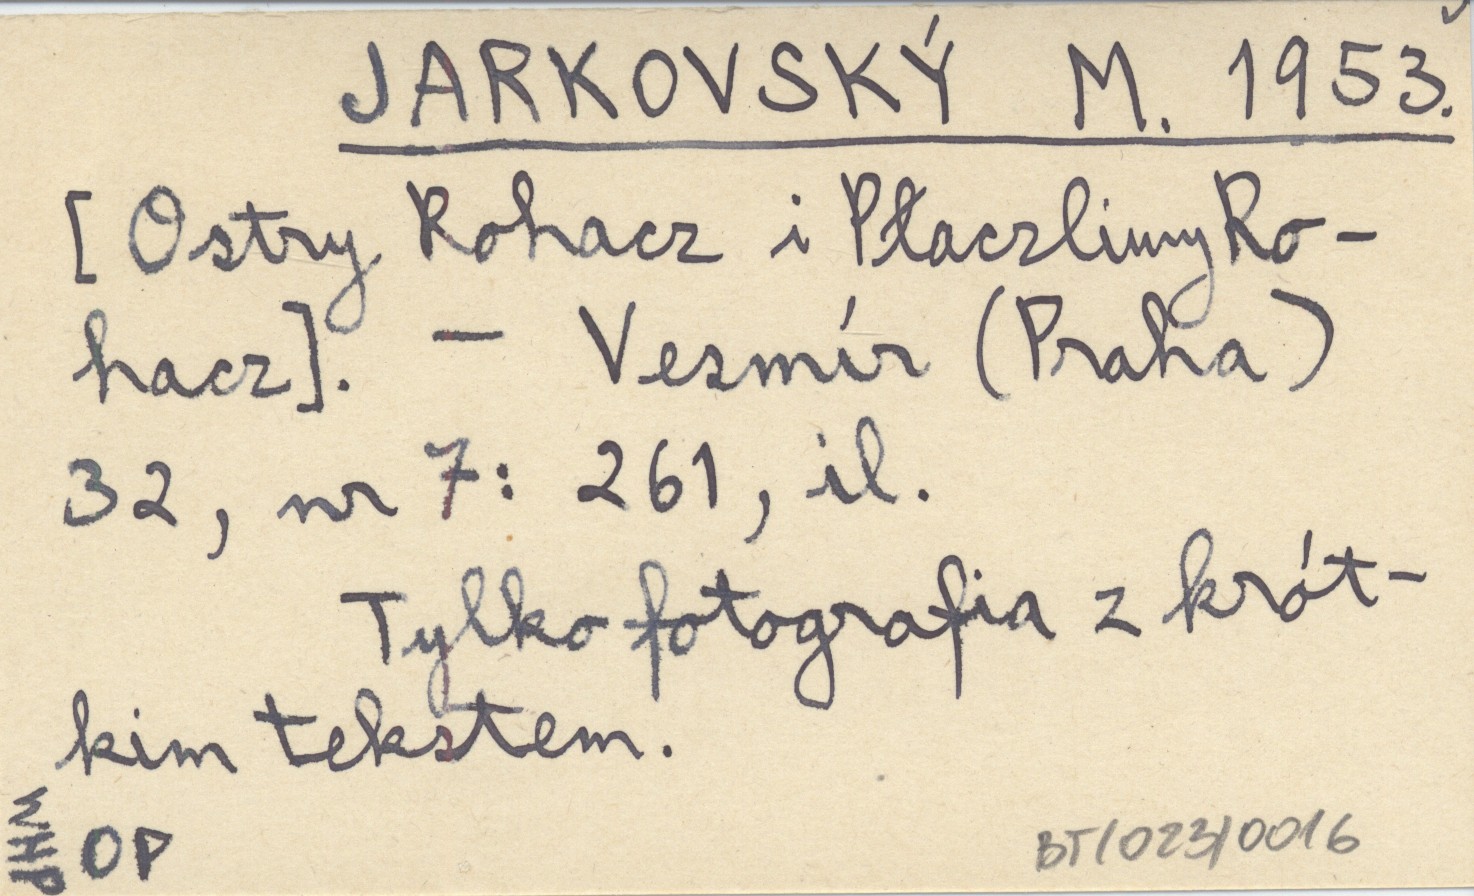 JARKOVSKÝ M. 1953.
[Ostry Rohacz i Płaczliwy Ro-
hacz]. – Vesmír (Praha)
32, nr 7: 261, il.
Tylko fotografia z krót-
kim tekstem.
WHP
OP
BT/023/0016